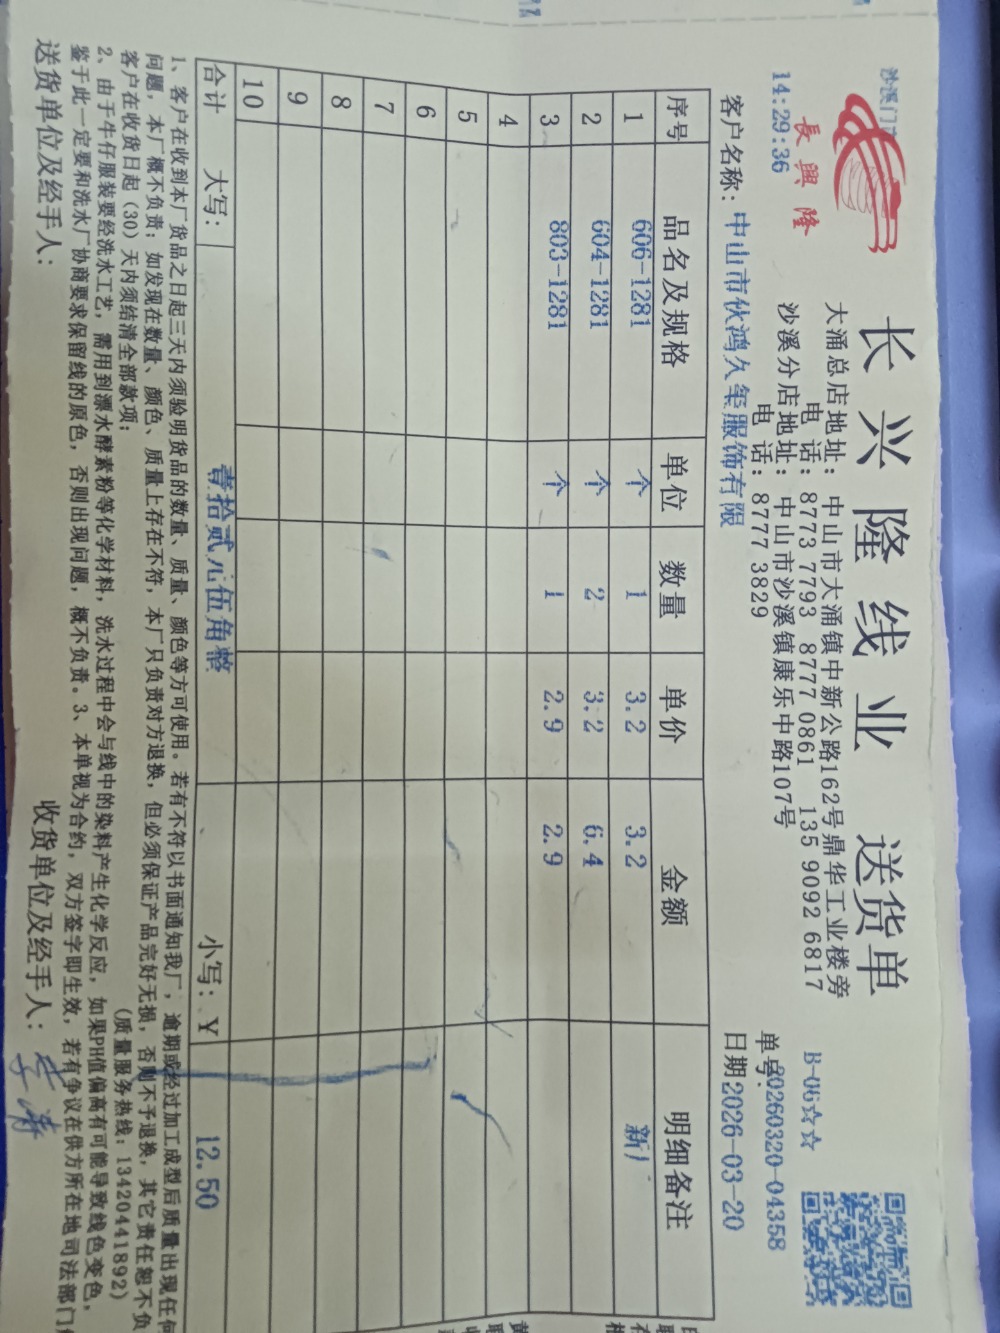 沙溪门市
長興隆
14:29:36
长兴隆线业 送货单
B-06☆☆
大涌总店地址：中山市大涌镇中新公路162号鼎华工业楼旁
电 话：8773 7793 8777 0861 135 9092 6817
沙溪分店地址：中山市沙溪镇康乐中路107号
电 话：8777 3829
单号:20260320-04358
客户名称：中山市伙鸿久玺服饰有限
日期2026-03-20
序号 品名及规格 单位 数量 单价 金额 明细备注
1 606-1281 个 1 3.2 3.2 新厂
2 604-1281 个 2 3.2 6.4
3 803-1281 个 1 2.9 2.9
4
5
6
7
8
9
10
合计 大写： 壹拾贰元伍角整 小写：￥ 12.50
1、客户在收到本厂货品之日起三天内须验明货品的数量、质量、颜色等方可使用。若有不符以书面通知我厂，逾期或经过加工成型后质量出现任何
问题，本厂概不负责；如发现在数量、颜色、质量上存在不符，本厂只负责对方退换，但必须保证产品完好无损，否则不予退换，其它责任恕不负
客户在收货日起（30）天内须结清全部款项； （质量服务热线：13420441892）
2、由于牛仔服装要经洗水工艺，需用到漂水酵素粉等化学材料，洗水过程中会与线中的染料产生化学反应，如果PH值偏高有可能导致线色变色，
鉴于此一定要和洗水厂协商要求保留线的原色，否则出现问题，概不负责。3、本单视为合约，双方签字即生效，若有争议在供方所在地司法部门
送货单位及经手人： 收货单位及经手人：